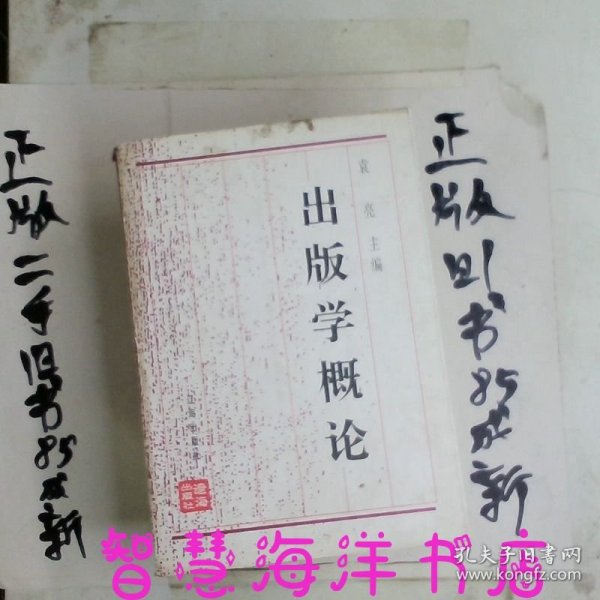 正版二手旧书85成新
袁亮主编
出版学概论
辽海出版社
正版旧书85成新
智慧海洋书店
孔夫子旧书网
www.kongfz.com